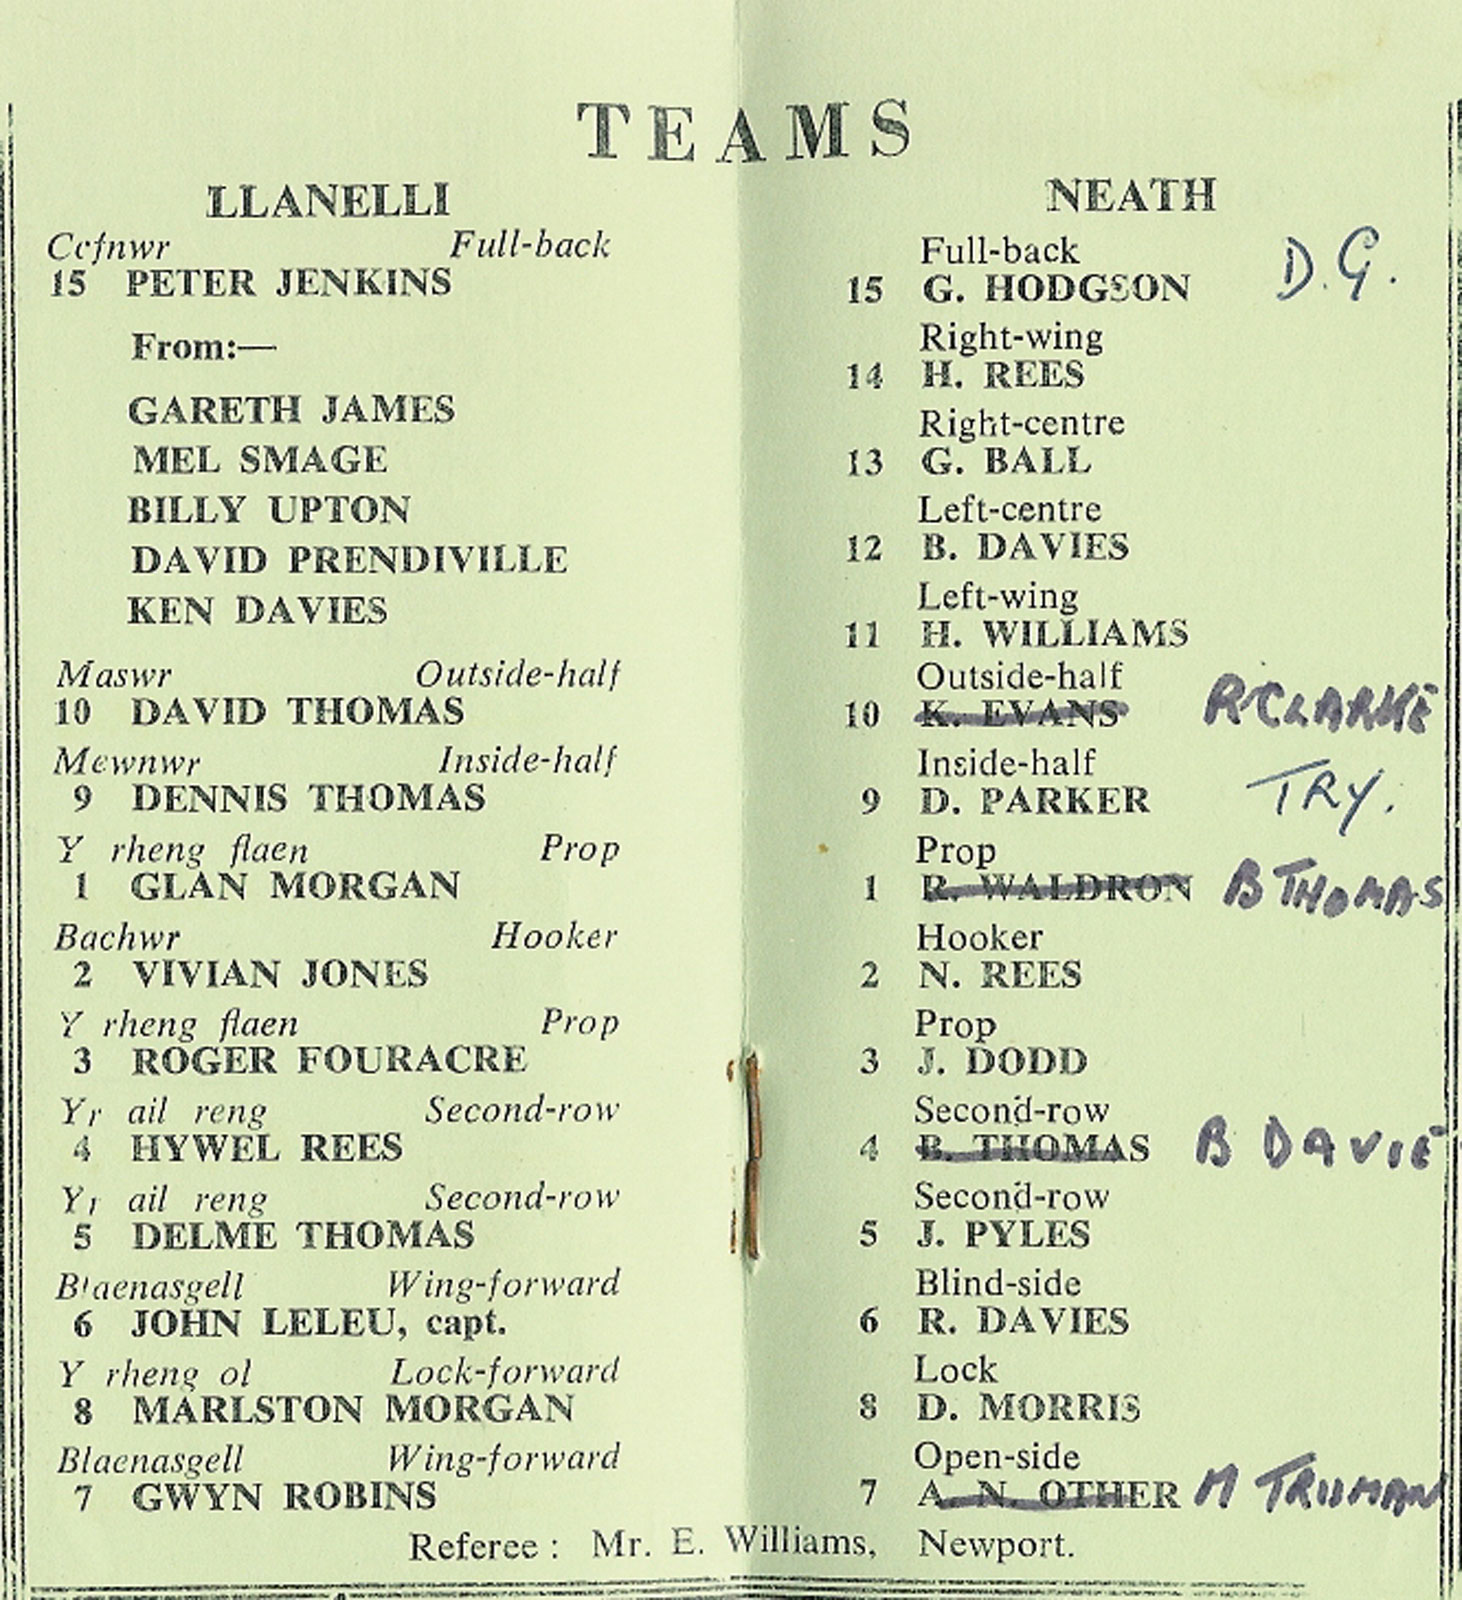 TEAMS
LLANELLI
Cefnwr Full-back
15 PETER JENKINS
From:—
GARETH JAMES
MEL SMAGE
BILLY UPTON
DAVID PRENDIVILLE
KEN DAVIES
Maswr Outside-half
10 DAVID THOMAS
Mewnwr Inside-half
9 DENNIS THOMAS
Y rheng flaen Prop
1 GLAN MORGAN
Bachwr Hooker
2 VIVIAN JONES
Y rheng flaen Prop
3 ROGER FOURACRE
Yr ail reng Second-row
4 HYWEL REES
Yr ail reng Second-row
5 DELME THOMAS
Blaenasgell Wing-forward
6 JOHN LELEU, capt.
Y rheng ol Lock-forward
8 MARLSTON MORGAN
Blaenasgell Wing-forward
7 GWYN ROBINS
NEATH
Full-back
15 G. HODGSON D.G.
Right-wing
14 H. REES
Right-centre
13 G. BALL
Left-centre
12 B. DAVIES
Left-wing
11 H. WILLIAMS
Outside-half
10 K. EVANS R CLARKE
Inside-half
9 D. PARKER TRY.
Prop
1 R. WALDRON B THOMAS
Hooker
2 N. REES
Prop
3 J. DODD
Second-row
4 B. THOMAS B DAVIE
Second-row
5 J. PYLES
Blind-side
6 R. DAVIES
Lock
8 D. MORRIS
Open-side
7 A. N. OTHER M TRUMAN
Referee : Mr. E. Williams, Newport.